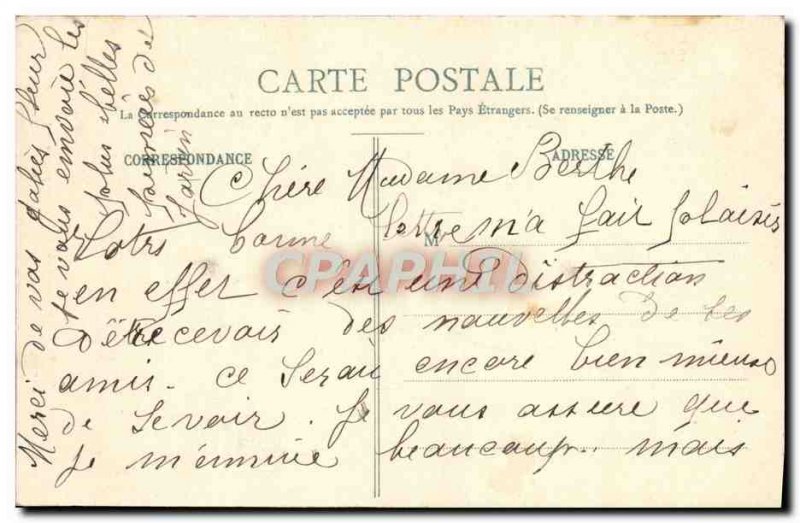 CARTE POSTALE
La Correspondance au recto n'est pas acceptée par tous les Pays Étrangers. (Se renseigner à la Poste.)
CORRESPONDANCE
ADRESSE
M
Chère Madame Berthe
Votre bonne lettre m'a fait plaisir
en effet c'est une distraction
de recevoir des nouvelles de ses
amis. ce serait encore bien mieux
de se voir. Je vous assure que
je m'ennuie beaucoup.. mais
Merci de vos jolies fleurs
je vous envoie les
plus belles
de
CPAPHIL